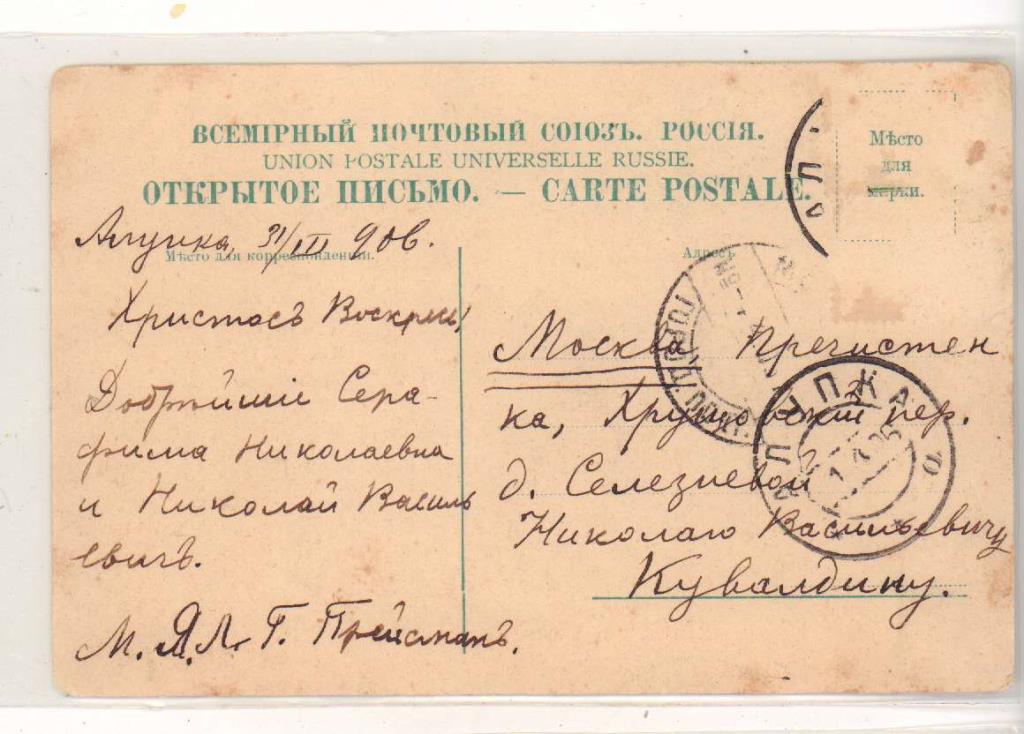 ВСЕМІРНЫЙ ПОЧТОВЫЙ СОЮЗЪ. РОССІЯ.
UNION POSTALE UNIVERSELLE RUSSIE.
ОТКРЫТОЕ ПИСЬМО. — CARTE POSTALE.
Мѣсто
для
марки.
Алупка, 31/III 906.
Мѣсто для корреспонденціи.
Христосъ Воскресъ
Добрѣйшіе Сера-
фима Николаевна
и Николай Василь
евичъ.
М. Я. Л. Г. Прейсманъ.
Адресъ
Москва Пречистен
ка, Хрущовскій пер.
д. Селезневой
Николаю Васильевичу
Кувалдину.
АЛУПКА
1 4 06
АЛ